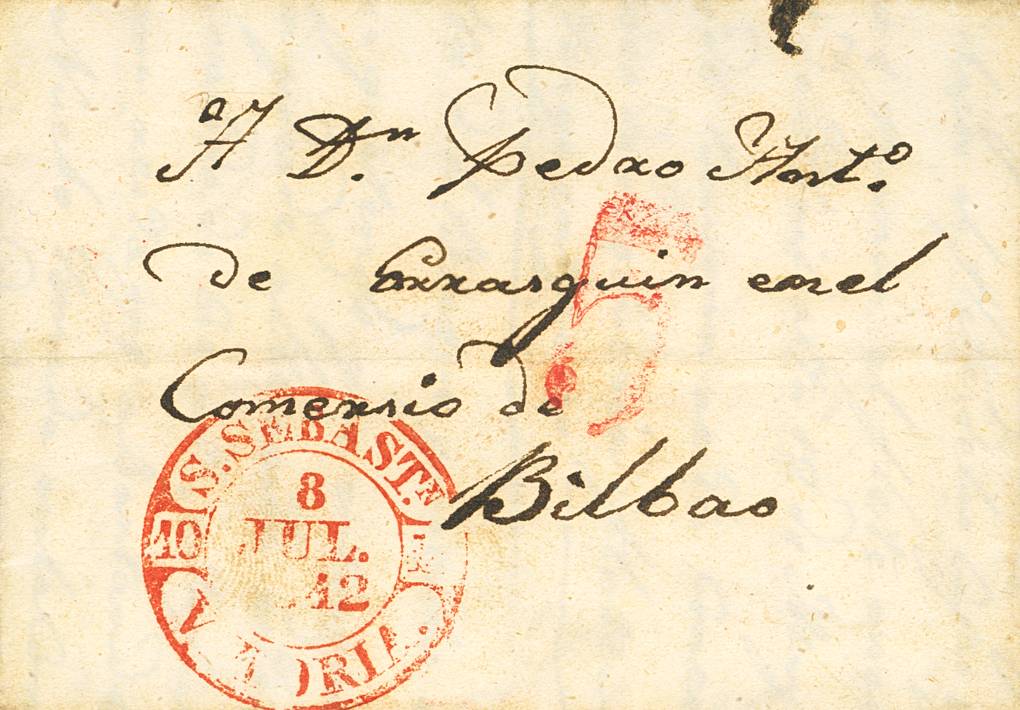 A Dⁿ. Pedro Antº.
de Errasquin en el
Comersio de
Bilbao
5
S. SEBASTᴺ.
10
8
JUL.
42